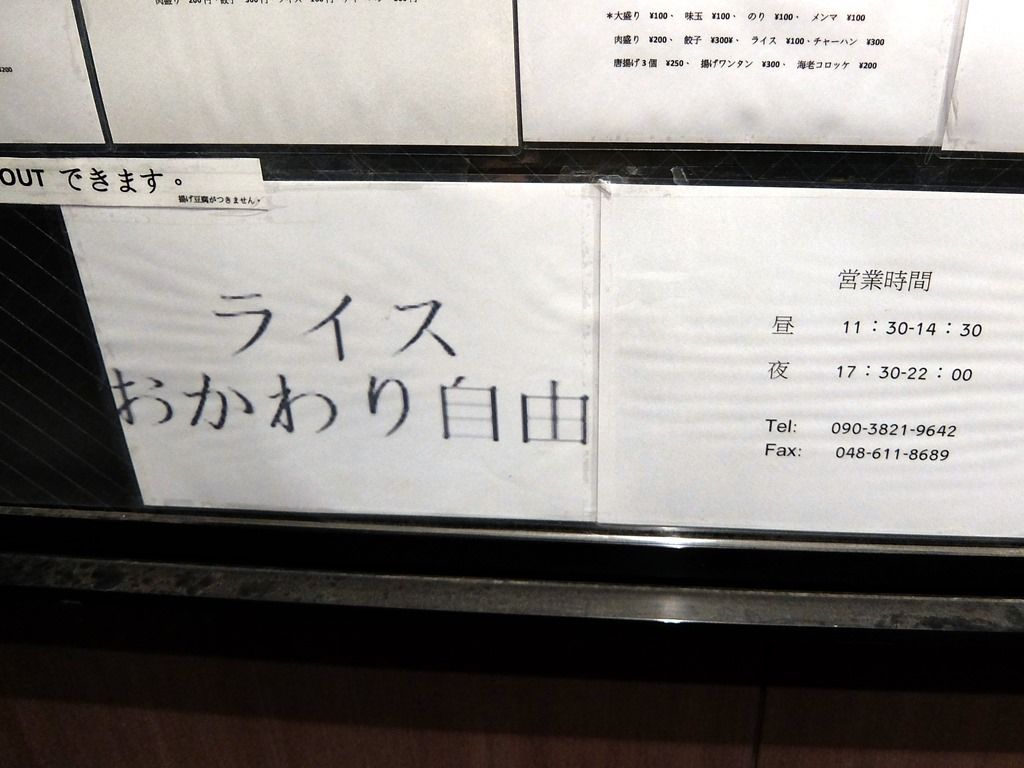 *大盛り ¥100、 味玉 ¥100、 のり ¥100、 メンマ ¥100
肉盛り ¥200、 餃子 ¥300¥、 ライス ¥100、チャーハン ¥300
唐揚げ3個 ¥250、 揚げワンタン ¥300、 海老コロッケ ¥200
¥200
OUT できます。
揚げ豆腐がつきません。
ライス
おかわり自由
営業時間
昼 11：30-14：30
夜 17：30-22：00
Tel: 090-3821-9642
Fax: 048-611-8689